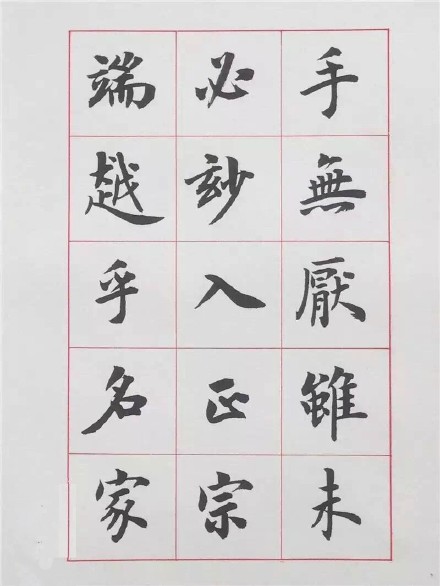 手無厭雖未
必玅入正宗
端越乎名家